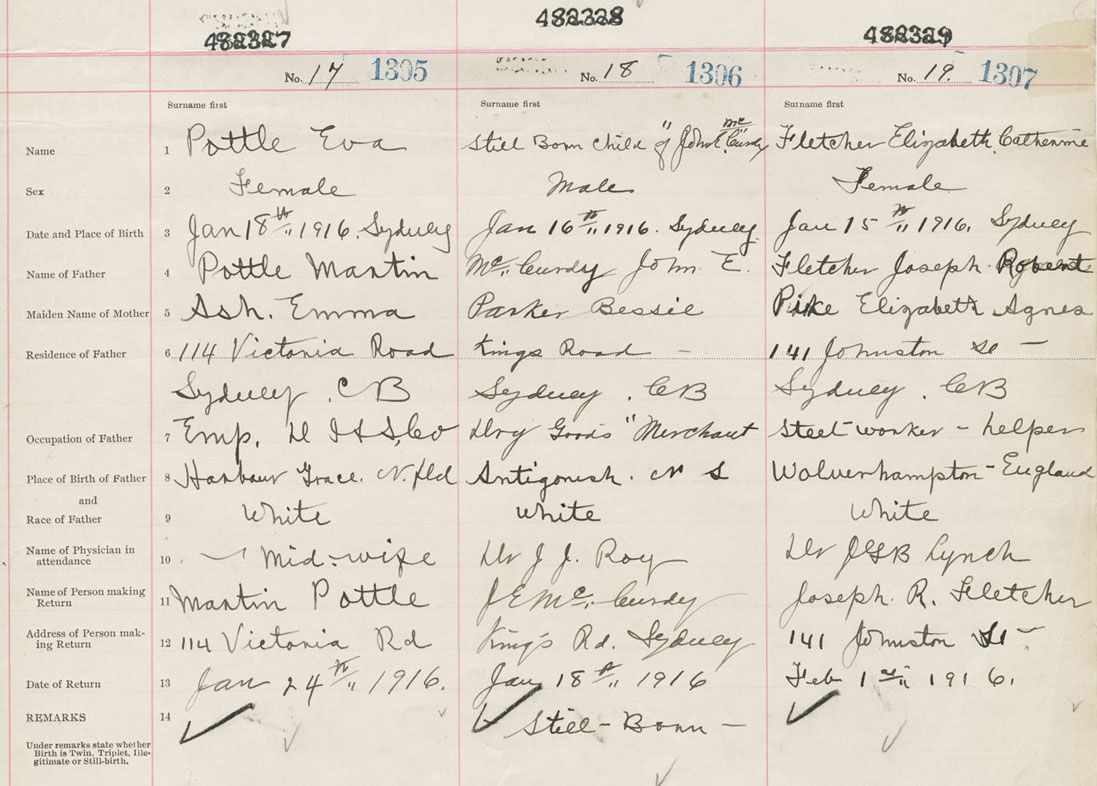 482327 482328 482329
No. 17 1305 No. 18 1306 No. 19. 1307
Surname first Surname first Surname first
Name 1 Pottle Eva Still Born Child "of John E. Mc"Curdy Fletcher Elizabeth Catherine
Sex 2 Female Male Female
Date and Place of Birth 3 Jan 18th" 1916. Sydney Jan 16th" 1916. Sydney Jan 15th" 1916. Sydney
Name of Father 4 Pottle Martin Mc"Curdy John E. Fletcher Joseph Robert
Maiden Name of Mother 5 Ash. Emma Parker Bessie Pike Elizabeth Agnes
Residence of Father 6 114 Victoria Road Kings Road - 141 Johnston St -
Sydney. C B Sydney. C B Sydney. C B
Occupation of Father 7 Emp. D I & S, Co Dry Goods "Merchant Steel worker - helper
Place of Birth of Father 8 Harbour Grace. N. Fld Antigonish. N S Wolverhampton - England
and
Race of Father 9 White White White
Name of Physician in
attendance 10 Mid-wife Dr J. J. Roy Dr JGB Lynch
Name of Person making
Return 11 Martin Pottle J E Mc"Curdy Joseph. R. Fletcher
Address of Person mak-
ing Return 12 114 Victoria Rd King's Rd. Sydney 141 Johnston St -
Date of Return 13 Jan 24th" 1916. Jan 18th" 1916 Feb 1st" 1916.
REMARKS 14 Still-Born -
Under remarks state whether
Birth is Twin, Triplet, Ille-
gitimate or Still-birth.